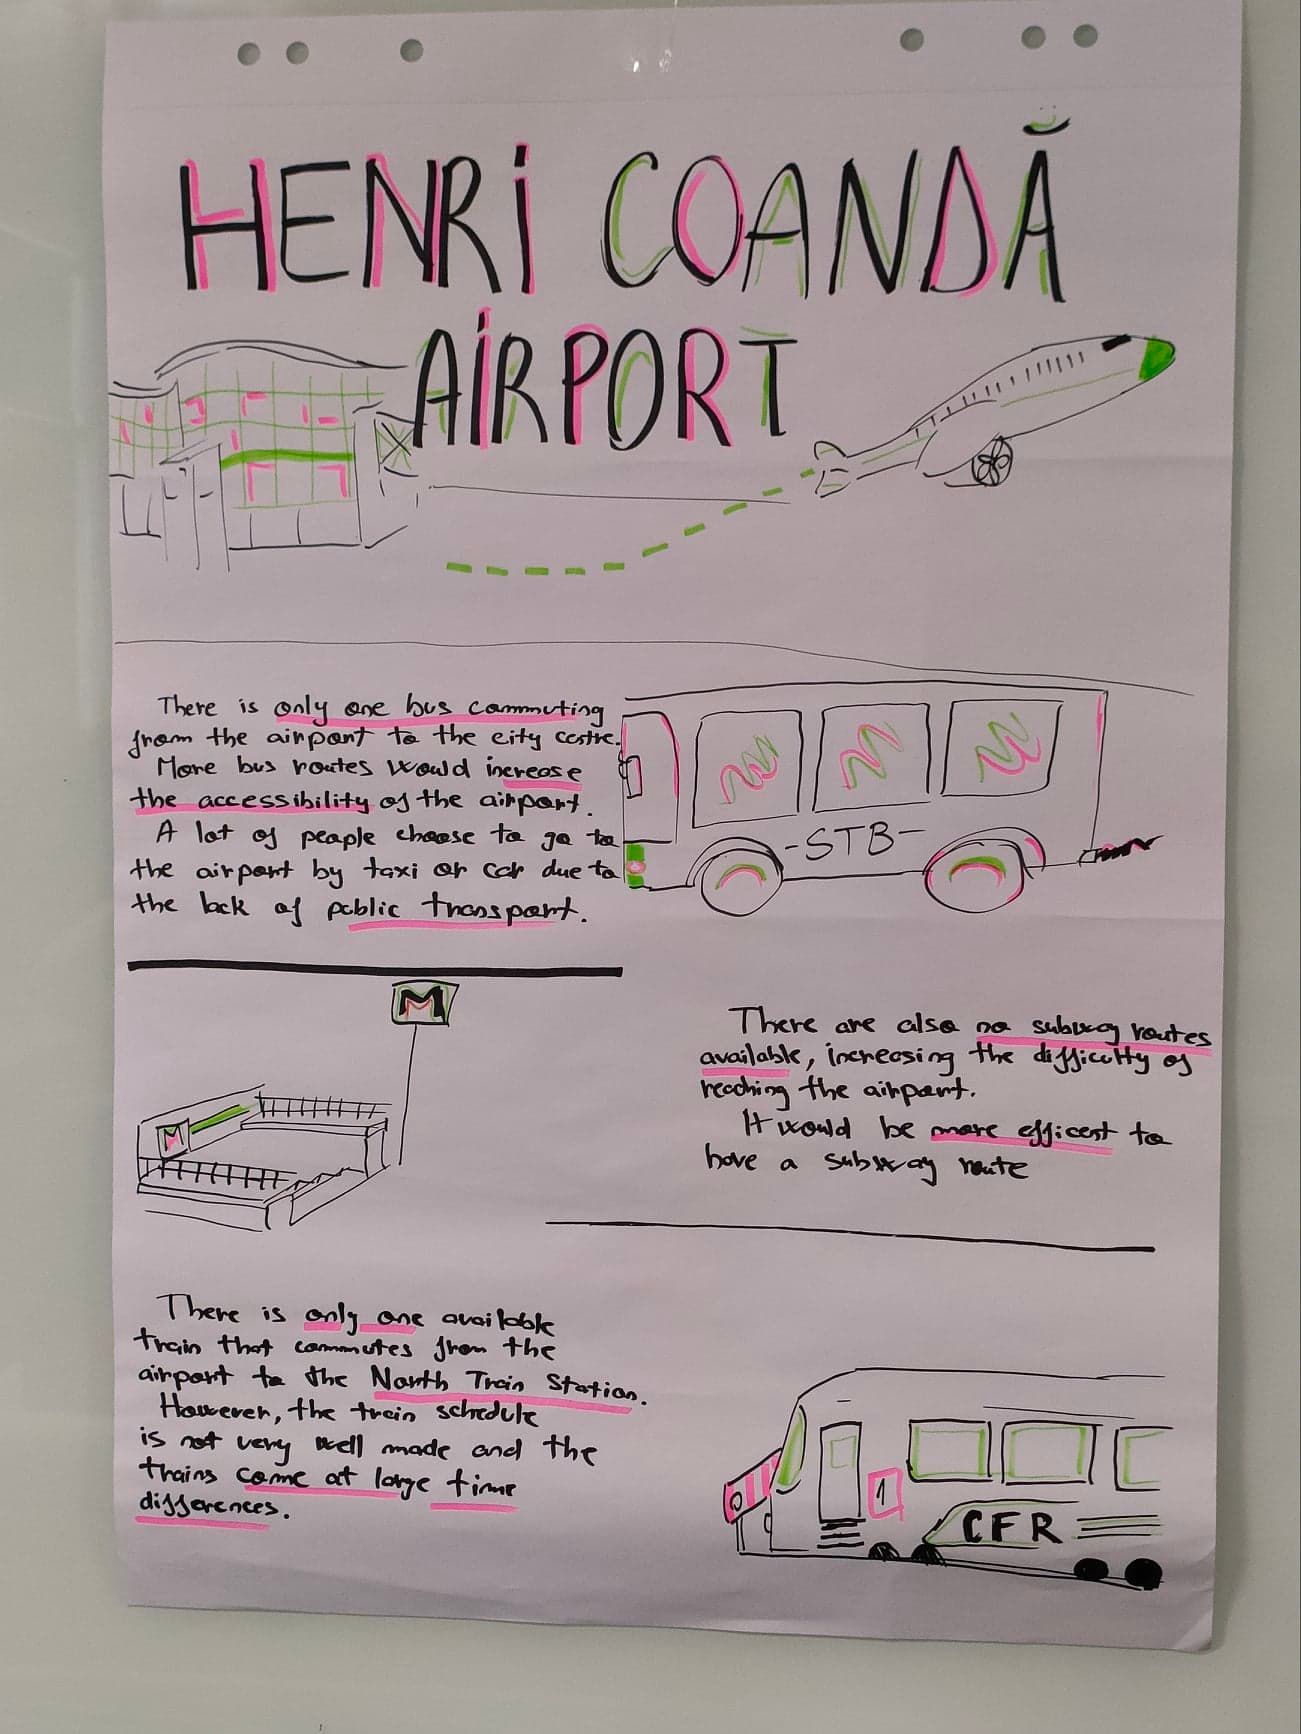 HENRI COANDĂ
AIRPORT
There is only one bus commuting
from the airport to the city centre.
More bus routes would increase
the accessibility of the airport.
A lot of people choose to go to
the airport by taxi or car due to
the lack of public transport.
-STB-
M
M
There are also no subway routes
available, increasing the difficulty of
reaching the airport.
It would be more efficent to
have a subway route
There is only one available
train that commutes from the
airport to the North Train Station.
However, the train schedule
is not very well made and the
trains come at large time
differences.
1
CFR